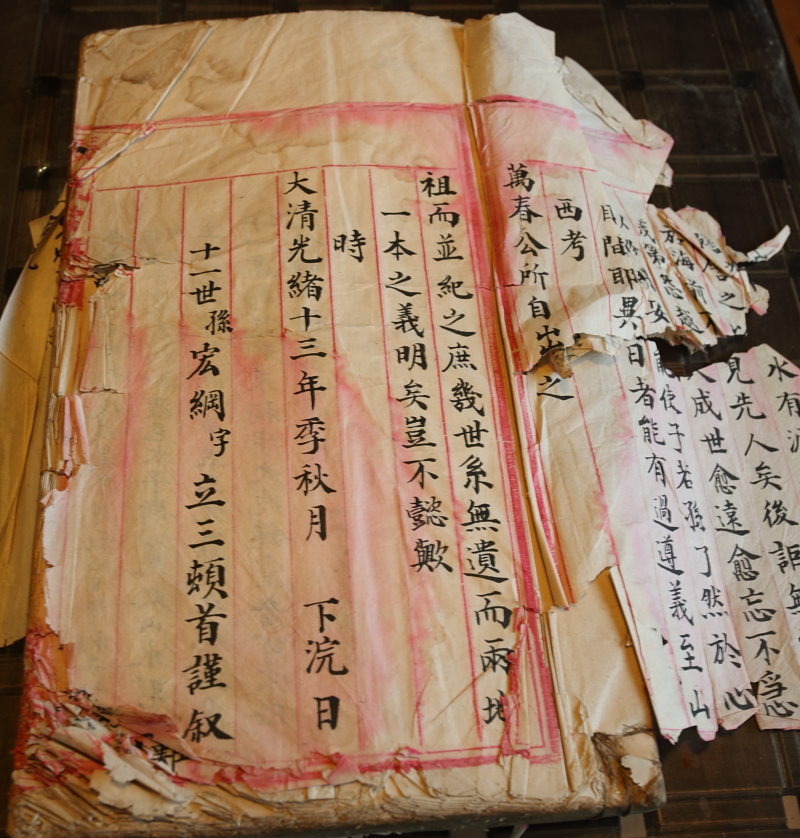 水有
見先人矣後詎無
成世愈遠愈忘不
使子者孫了然於心
異日者能有過遵義至山
西考
萬春公所自出之
祖而並紀之庶幾世系無遺而兩地
一本之義明矣豈不懿歟
時
大清光緒十三年季秋月 下浣日
十一世孫宏綱字立三頓首謹叙